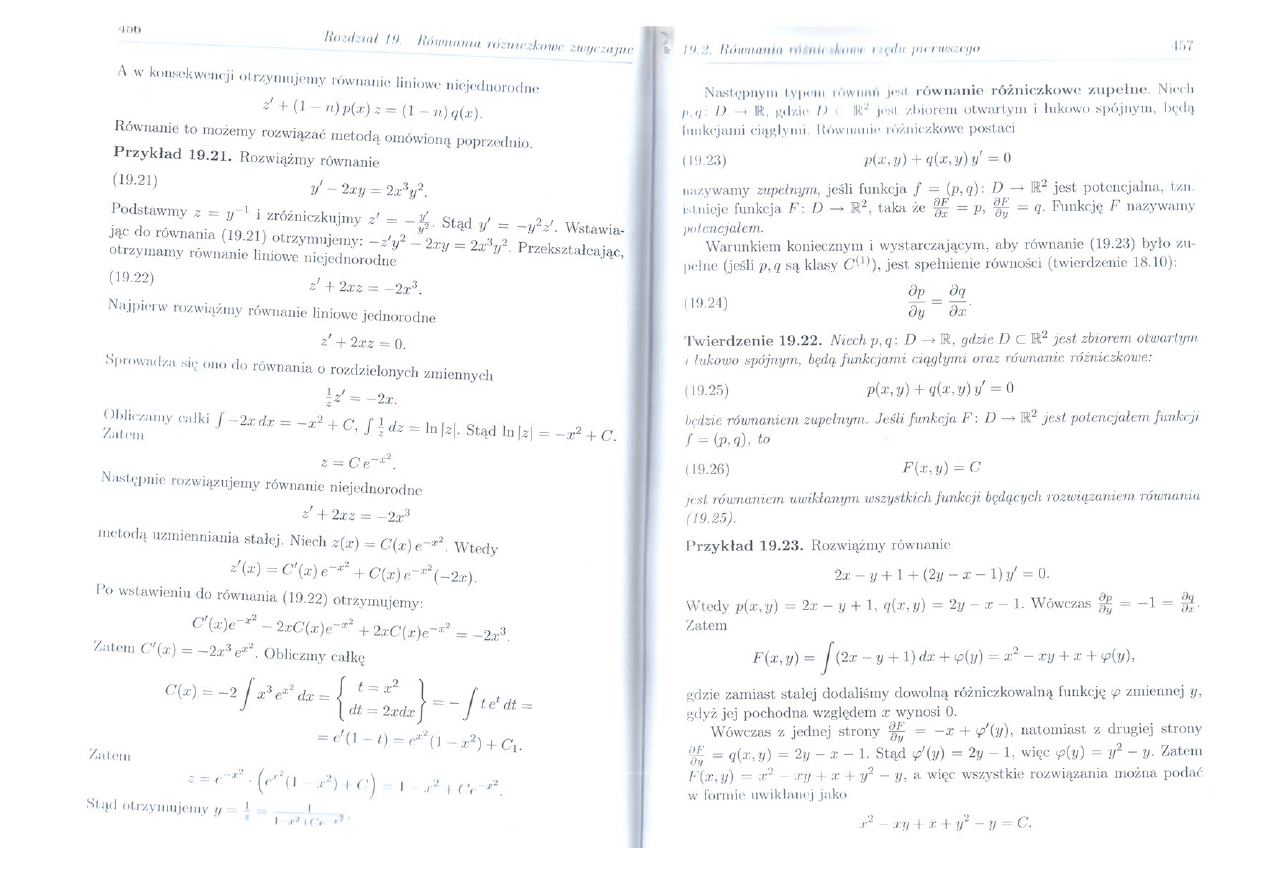 456
Rozdział 19. Równania różniczkowe zwyczajne
A w konsekwencji otrzymujemy równanie liniowe niejednorodne
z′ + (1 − n) p(x) z = (1 − n) q(x).
Równanie to możemy rozwiązać metodą omówioną poprzednio.
Przykład 19.21. Rozwiążmy równanie
(19.21) y′ − 2xy = 2x³y².
Podstawmy z = y⁻¹ i zróżniczkujmy z′ = −y′/y². Stąd y′ = −y²z′. Wstawia-
jąc do równania (19.21) otrzymujemy: −z′y² − 2xy = 2x³y². Przekształcając,
otrzymamy równanie liniowe niejednorodne
(19.22) z′ + 2xz = −2x³.
Najpierw rozwiążmy równanie liniowe jednorodne
z′ + 2xz = 0.
Sprowadza się ono do równania o rozdzielonych zmiennych
1/z z′ = −2x.
Obliczamy całki ∫ −2x dx = −x² + C, ∫ 1/z dz = ln |z|. Stąd ln |z| = −x² + C.
Zatem
z = C e^{−x²}.
Następnie rozwiązujemy równanie niejednorodne
z′ + 2xz = −2x³
metodą uzmienniania stałej. Niech z(x) = C(x) e^{−x²}. Wtedy
z′(x) = C′(x) e^{−x²} + C(x) e^{−x²}(−2x).
Po wstawieniu do równania (19.22) otrzymujemy:
C′(x)e^{−x²} − 2xC(x)e^{−x²} + 2xC(x)e^{−x²} = −2x³.
Zatem C′(x) = −2x³ e^{x²}. Obliczmy całkę
C(x) = −2 ∫ x³ e^{x²} dx = { t = x² dt = 2xdx } = − ∫ t e^t dt =
= e^t(1 − t) = e^{x²}(1 − x²) + C₁.
Zatem
z = e^{−x²} · (e^{x²}(1 − x²) + C) = 1 − x² + C e^{−x²}.
Stąd otrzymujemy y = 1/z = 1/(1−x²+Ce^{−x²}).
19.2. Równania różniczkowe rzędu pierwszego
457
Następnym typem równań jest równanie różniczkowe zupełne. Niech
p, q: D → ℝ, gdzie D ⊂ ℝ² jest zbiorem otwartym i łukowo spójnym, będą
funkcjami ciągłymi. Równanie różniczkowe postaci
(19.23) p(x, y) + q(x, y) y′ = 0
nazywamy zupełnym, jeśli funkcja f = (p, q): D → ℝ² jest potencjalna, tzn.
istnieje funkcja F: D → ℝ², taka że ∂F/∂x = p, ∂F/∂y = q. Funkcję F nazywamy
potencjałem.
Warunkiem koniecznym i wystarczającym, aby równanie (19.23) było zu-
pełne (jeśli p, q są klasy C⁽¹⁾), jest spełnienie równości (twierdzenie 18.10):
(19.24) ∂p/∂y = ∂q/∂x.
Twierdzenie 19.22. Niech p, q: D → ℝ, gdzie D ⊂ ℝ² jest zbiorem otwartym
i łukowo spójnym, będą funkcjami ciągłymi oraz równanie różniczkowe:
(19.25) p(x, y) + q(x, y) y′ = 0
będzie równaniem zupełnym. Jeśli funkcja F: D → ℝ² jest potencjałem funkcji
f = (p, q), to
(19.26) F(x, y) = C
jest równaniem uwikłanym wszystkich funkcji będących rozwiązaniem równania
(19.25).
Przykład 19.23. Rozwiążmy równanie
2x − y + 1 + (2y − x − 1) y′ = 0.
Wtedy p(x, y) = 2x − y + 1, q(x, y) = 2y − x − 1. Wówczas ∂p/∂y = −1 = ∂q/∂x.
Zatem
F(x, y) = ∫ (2x − y + 1) dx + φ(y) = x² − xy + x + φ(y),
gdzie zamiast stałej dodaliśmy dowolną różniczkowalną funkcję φ zmiennej y,
gdyż jej pochodna względem x wynosi 0.
Wówczas z jednej strony ∂F/∂y = −x + φ′(y), natomiast z drugiej strony
∂F/∂y = q(x, y) = 2y − x − 1. Stąd φ′(y) = 2y − 1, więc φ(y) = y² − y. Zatem
F(x, y) = x² − xy + x + y² − y, a więc wszystkie rozwiązania można podać
w formie uwikłanej jako
x² − xy + x + y² − y = C.